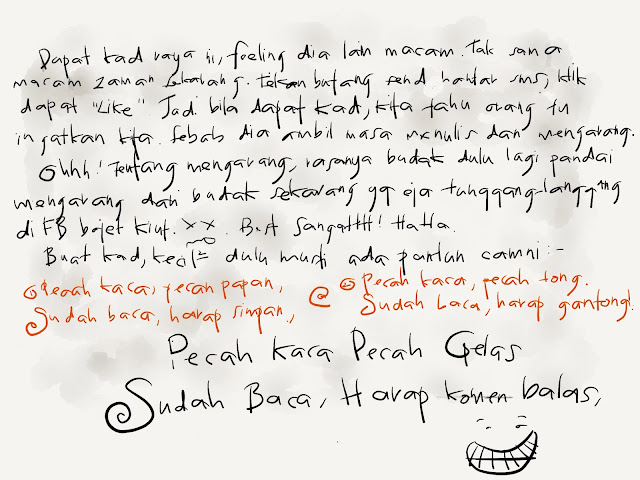 Dapat kad raya ni, feeling dia lain macam. Tak sama
macam zaman sekarang. Tekan butang send hantar sms, klik
dapat "Like". Jadi bila dapat kad, kita tahu orang tu
ingatkan kita. Sebab dia ambil masa menulis dan mengarang.
Ohhh! Tentang mengarang, rasanya budak dulu lagi pandai
mengarang dari budak sekarang yg eja tunggang-langgang
di FB bajet kiut. xx. Best Sangatttt! Hatta.
Buat kad, kecil² dulu mesti ada pantun camni :-
Pecah kaca, pecah papan, @ Pecah kaca, pecah tong.
Sudah baca, harap simpan, Sudah baca, harap gantong!
Pecah Kaca Pecah Gelas
Sudah Baca, Harap komen balas,